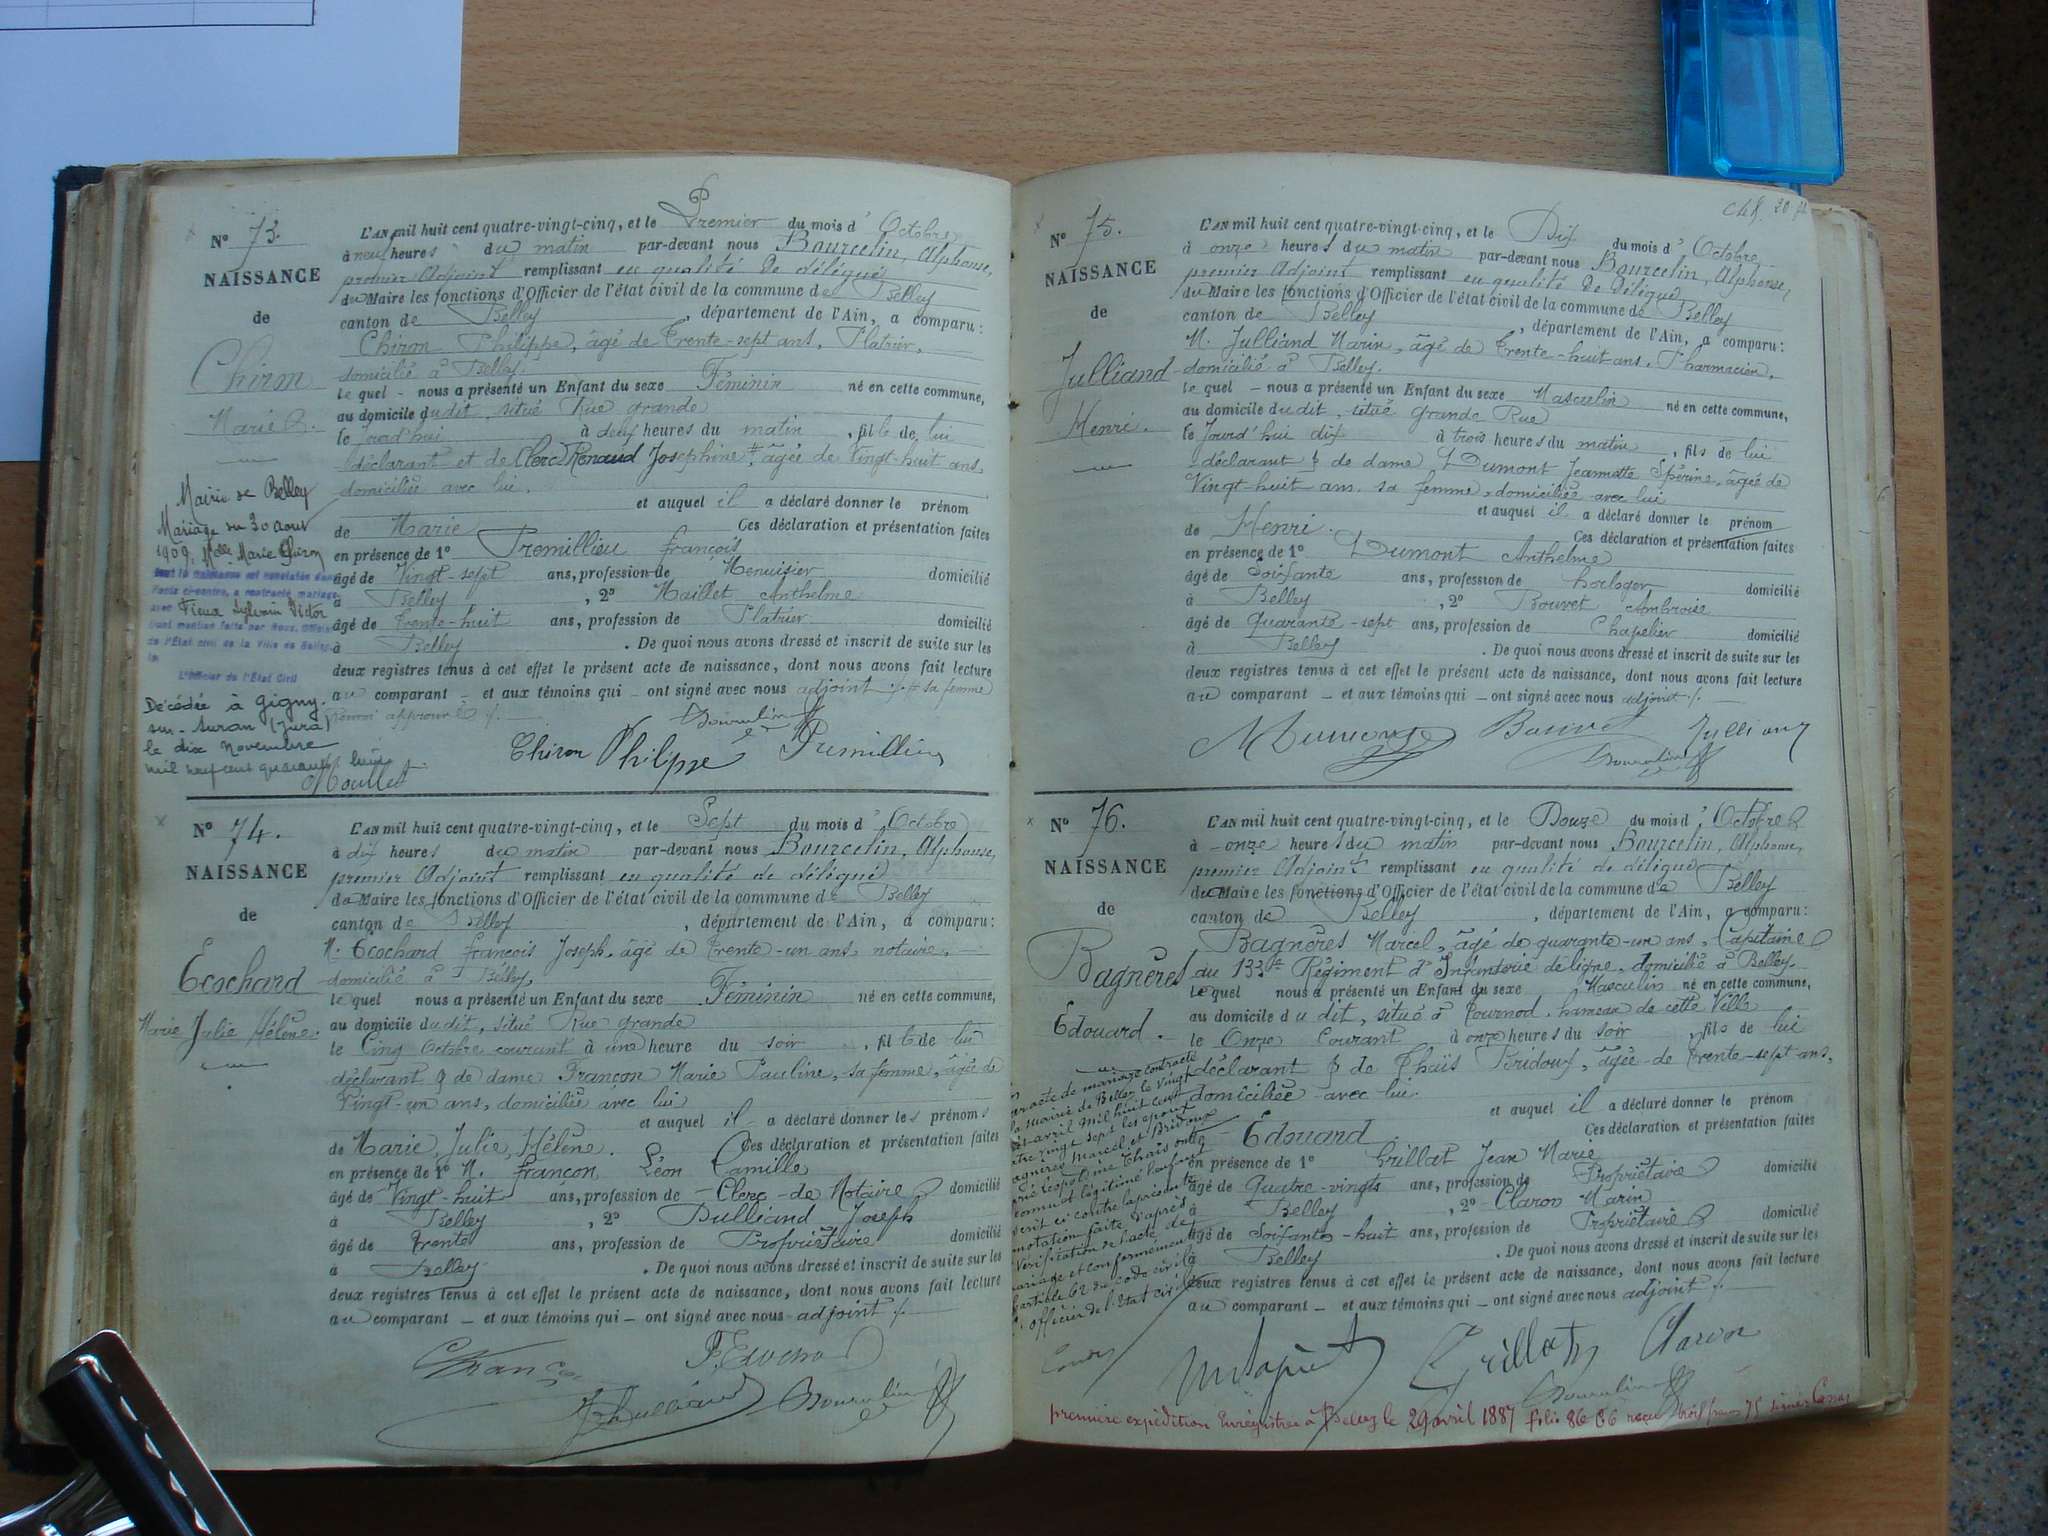 N° 73.
NAISSANCE
de
Chiron
Marie
L'AN mil huit cent quatre-vingt-cinq, et le Premier du mois d' Octobre
à neuf heures du matin par-devant nous Bourcelin, Alphonse,
premier Adjoint remplissant en qualité de délégué
du Maire les fonctions d'Officier de l'état civil de la commune de Belley
canton de Belley, département de l'Ain, a comparu:
Chiron Philippe, âgé de Trente-sept ans, Platrier,
domicilié à Belley.
le quel - nous a présenté un Enfant du sexe Féminin né en cette commune,
au domicile du dit, situé Rue grande
le jourd'hui à deux heures du matin, fille de lui
déclarant et de Clerc Renaud Josephine # âgée de Vingt-huit ans,
domiciliée avec lui.
et auquel il a déclaré donner le prénom
de Marie Ces déclaration et présentation faites
en présence de 1° Premillieu François
âgé de Vingt-sept ans, profession de Menuisier domicilié
à Belley, 2° Maillet Anthelme
âgé de Trente-huit ans, profession de Platrier domicilié
à Belley. De quoi nous avons dressé et inscrit de suite sur les
deux registres tenus à cet effet le présent acte de naissance, dont nous avons fait lecture
au comparant - et aux témoins qui - ont signé avec nous adjoint ./. # sa femme
Renvoi approuvé ./.
Chiron Philippe Premillieu
Mairie de Belley
Mariage du 30 Aout
1909. Melle Marie Chiron
dont la naissance est constatée dans
l'acte ci-contre, a contracté mariage
avec Fieux Sylvain Victor
Dont mention faite par Nous, Officier
de l'État civil de la Ville de Belley,
L'Officier de l'État Civil
Décédée à Gigny-
sur-Suran (Jura)
le dix Novembre
mil neuf cent quarante huit
N° 74.
NAISSANCE
de
Ecochard
Marie Julie Hélène.
L'AN mil huit cent quatre-vingt-cinq, et le Sept du mois d' Octobre
à dix heures du matin par-devant nous Bourcelin, Alphonse,
premier Adjoint remplissant en qualité de délégué
du Maire les fonctions d'Officier de l'état civil de la commune de Belley
canton de Belley, département de l'Ain, a comparu:
M. Ecochard François Joseph, âgé de Trente-un ans, notaire,
domicilié à Belley,
le quel nous a présenté un Enfant du sexe Féminin né en cette commune,
au domicile du dit, situé Rue grande
le Cinq Octobre courant à une heure du soir, fille de lui
déclarant & de dame Françon Marie Pauline, sa femme, âgée de
Vingt-un ans, domiciliée avec lui
et auquel il a déclaré donner les prénoms
de Marie, Julie, Hélène. Ces déclaration et présentation faites
en présence de 1° M. Françon Léon Camille
âgé de Vingt-huit ans, profession de Clerc de Notaire domicilié
à Belley, 2° Dulliand Joseph
âgé de Trente ans, profession de Propriétaire domicilié
à Belley. De quoi nous avons dressé et inscrit de suite sur les
deux registres tenus à cet effet le présent acte de naissance, dont nous avons fait lecture
au comparant - et aux témoins qui - ont signé avec nous adjoint ./.
N° 75.
NAISSANCE
de
Julliand
Henri.
L'AN mil huit cent quatre-vingt-cinq, et le Dix du mois d' Octobre
à onze heures du matin par-devant nous Bourcelin, Alphonse,
premier Adjoint remplissant en qualité de délégué
du Maire les fonctions d'Officier de l'état civil de la commune de Belley
canton de Belley, département de l'Ain, a comparu:
M. Julliand Marin, âgé de Trente-huit ans, Pharmacien,
domicilié à Belley.
le quel - nous a présenté un Enfant du sexe Masculin né en cette commune,
au domicile du dit, situé grande Rue
le Jourd'hui dix à trois heures du matin, fils de lui
déclarant & de dame Dumont Jeannette Spérine, âgée de
Vingt-huit ans, sa femme, domiciliée avec lui
et auquel il a déclaré donner le prénom
de Henri. Ces déclaration et présentation faites
en présence de 1° Dumont Anthelme
âgé de Soixante ans, profession de horloger domicilié
à Belley, 2° Bouvet Ambroise
âgé de Quarante-sept ans, profession de Chapelier domicilié
à Belley. De quoi nous avons dressé et inscrit de suite sur les
deux registres tenus à cet effet le présent acte de naissance, dont nous avons fait lecture
au comparant - et aux témoins qui - ont signé avec nous adjoint ./.
N° 76.
NAISSANCE
de
Bagnères
Edouard.
L'AN mil huit cent quatre-vingt-cinq, et le Douze du mois d' Octobre
à onze heures du matin par-devant nous Bourcelin, Alphonse,
premier Adjoint remplissant en qualité de délégué
du Maire les fonctions d'Officier de l'état civil de la commune de Belley
canton de Belley, département de l'Ain, a comparu:
Bagnères Marcel, âgé de quarante-un ans, Capitaine
au 133e Régiment d'Infanterie de ligne, domicilié à Belley.
Le quel nous a présenté un Enfant du sexe Masculin né en cette commune,
au domicile du dit, situé à Cournod, hameau de cette Ville
le Onze Courant à onze heures du soir, fils de lui
déclarant & de Thaïs Bridoux, âgée de Trente-sept ans,
domiciliée avec lui.
et auquel il a déclaré donner le prénom
Edouard Ces déclaration et présentation faites
en présence de 1° Grillat Jean Marie
âgé de Quatre-vingts ans, profession de Propriétaire domicilié
à Belley, 2° Claron Marin
âgé de Soixante-huit ans, profession de Propriétaire domicilié
à Belley. De quoi nous avons dressé et inscrit de suite sur les
deux registres tenus à cet effet le présent acte de naissance, dont nous avons fait lecture
au comparant - et aux témoins qui - ont signé avec nous adjoint ./.
acte de mariage contracté
mairie de Belley le vingt
avril mil huit cent
vingt sept les époux
Marcel et Bridoux
Léopoldine Thaïs ont
et légitimé l'enfant
inscrit ci contre la présente
annotation faite d'après
vérification de l'acte de
mariage et conformement
à l'article 62 du code civil
officier de l'état civil
Grillat Claron
première expédition Enregistrée à Belley le 29 avril 1887 folio 86 reçu trois francs 75